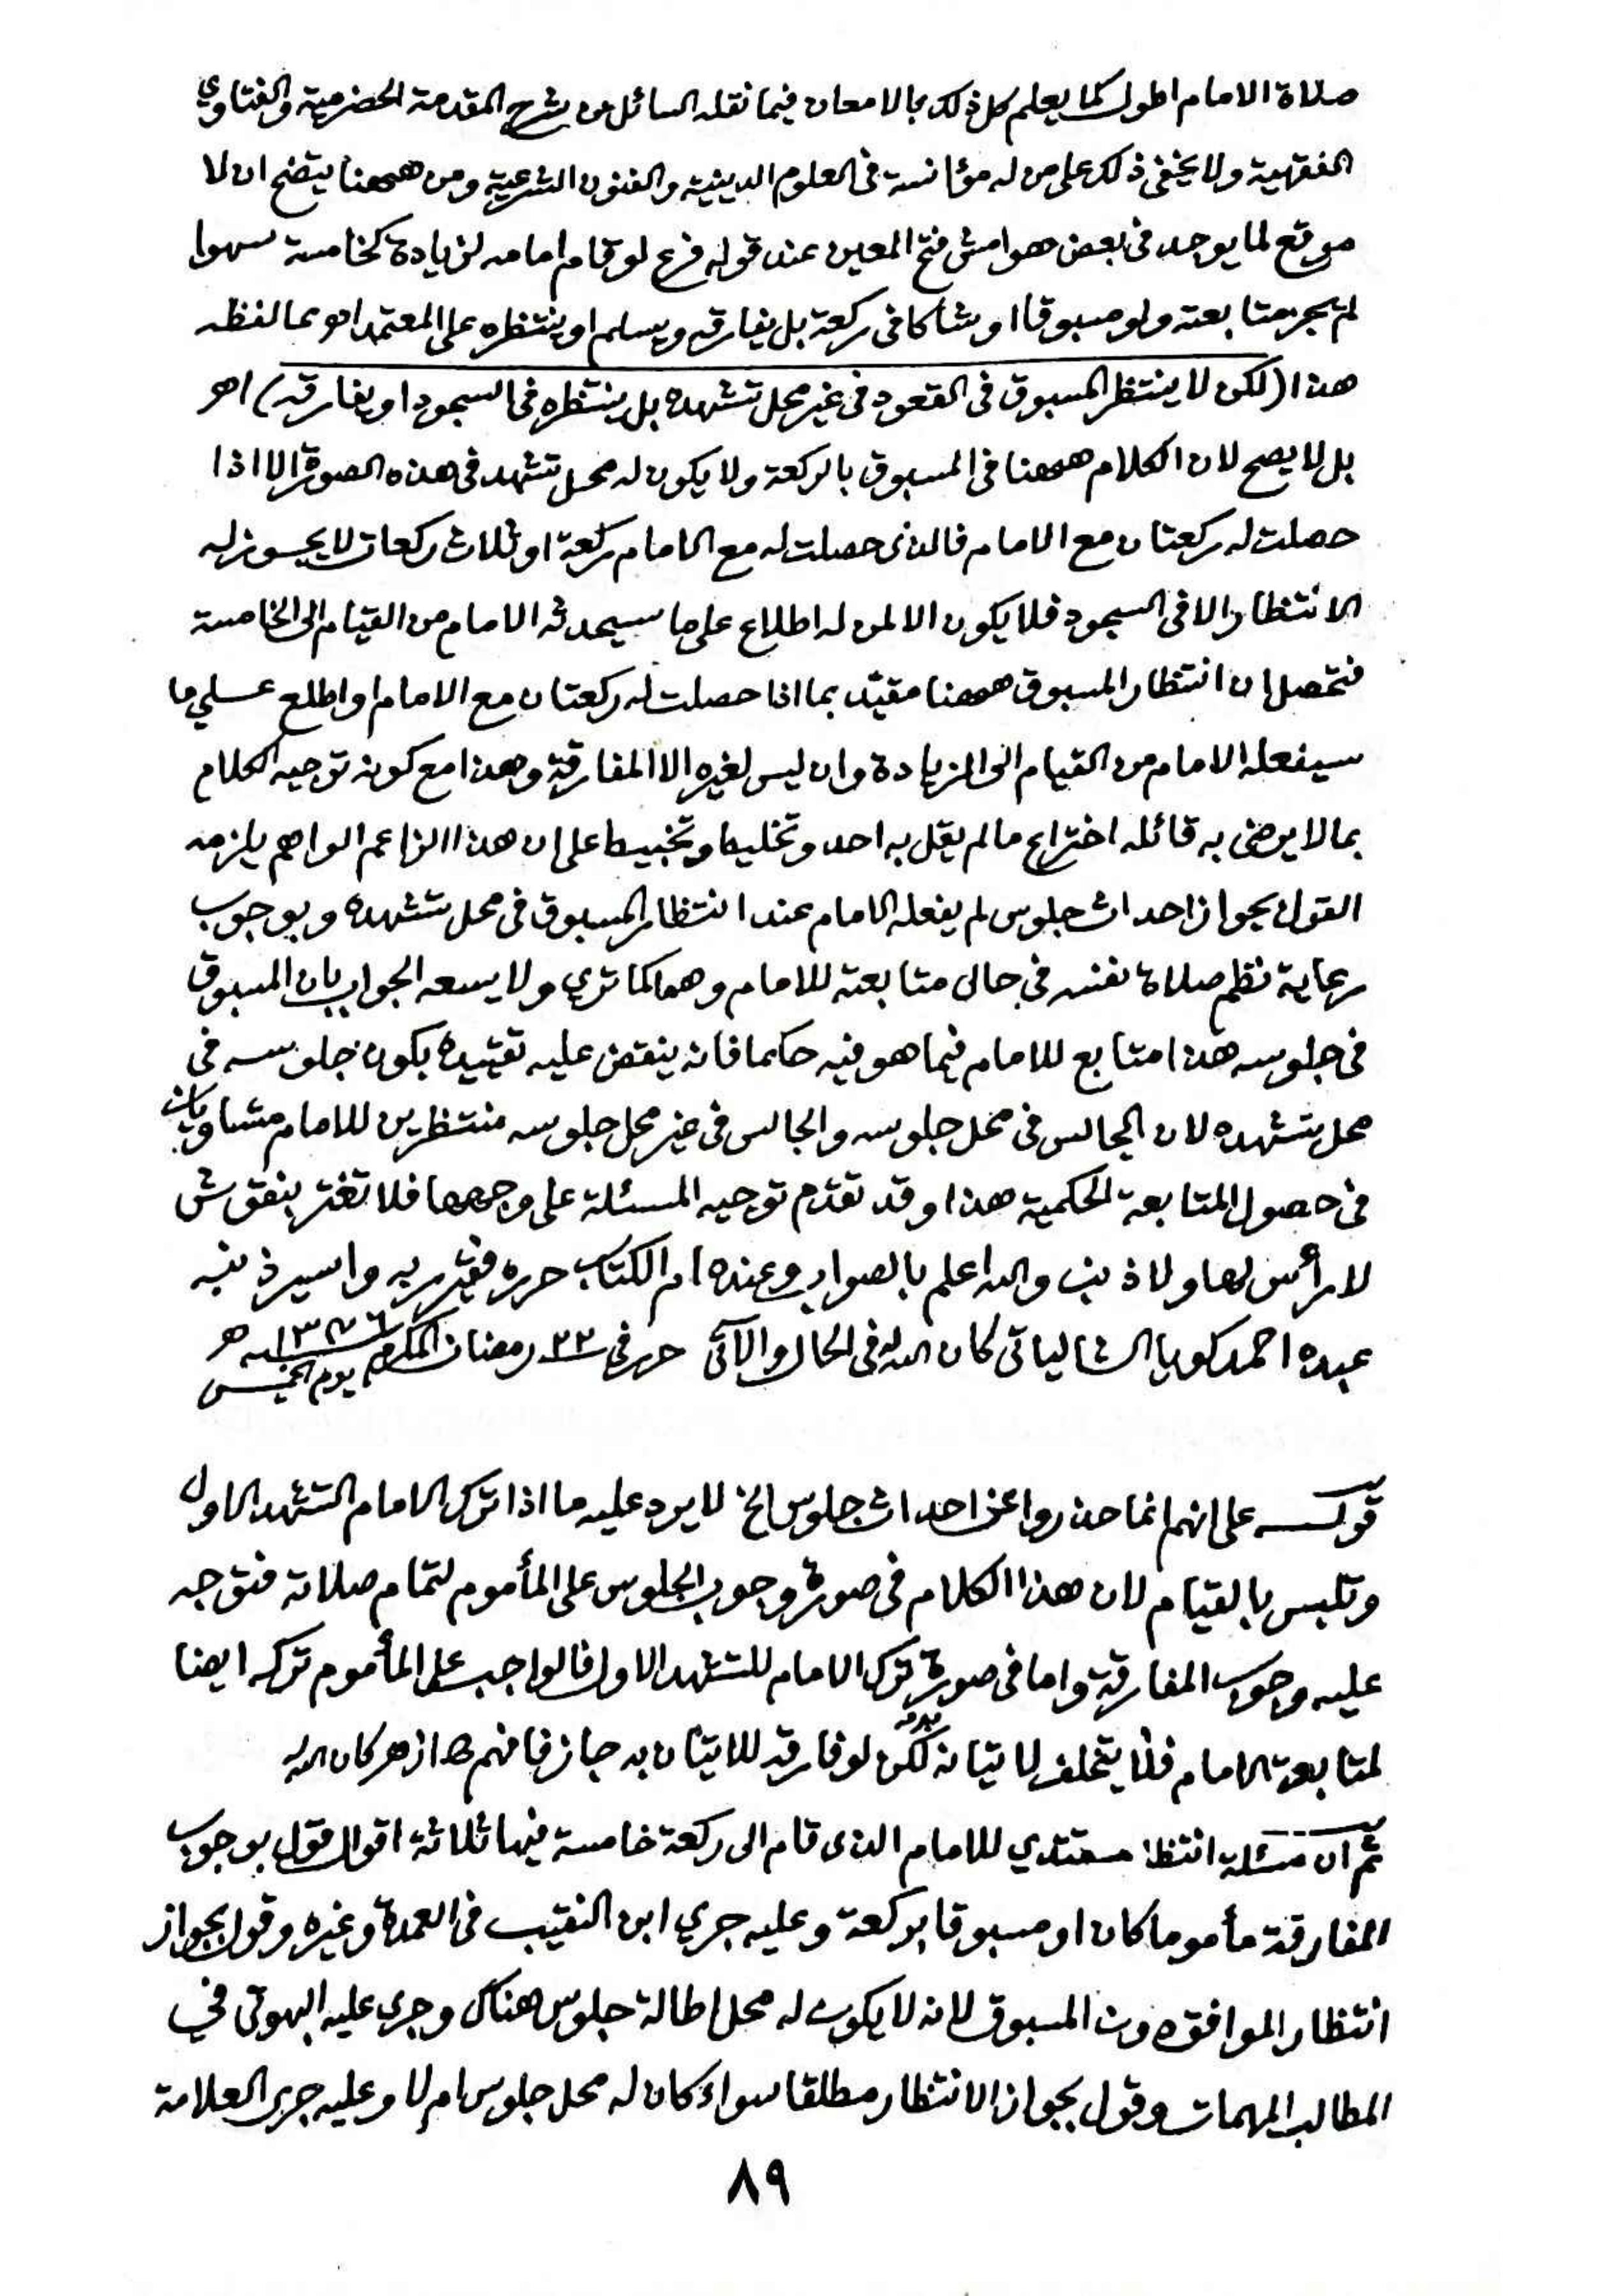 صلاة الامام اطول كما يعلم كل ذلك بالامعان فيما نقله السائل عن شرح المقدمة الحضرمية والفتاوي
الفقهية ولا يخفى ذلك على من له مؤانسة فى العلوم الدينية والفنون الشرعية ومن ههنا يتضح ان لا
موقع لما يوجد فى بعض هوامش فتح المعين عند قوله فرع لو قام امامه لزيادة كخامسة سهوا
لم تجز متابعته ولو مسبوقا او شاكا فى ركعة بل يفارقه ويسلم او ينتظره على المعتمد اهو بما لفظه
هذا (لكن لا ينتظر المسبوق فى القعود فى غير محل تشهده بل ينتظره فى السجود او يفارقه) اهر
بل لا يصح لان الكلام ههنا فى المسبوق بالركعة ولا يكون له محل تشهد فى هذه الصورة الا اذا
حصلت له ركعتان مع الامام فالذى حصلت له مع الامام ركعة او ثلاث ركعات لا يجوز له
الانتظار الا فى السجود فلا يكون الا لمن له اطلاع على ما سيحدثه الامام من القيام الى الخامسة
فتحصل ان انتظار المسبوق ههنا مقيد بما اذا حصلت له ركعتان مع الامام واطلع على ما
سيفعله الامام من القيام الى الزيادة وان ليس لغيره الا المفارقة وهذا مع كونه توجيه الكلام
بما لا يرضى به قائله اختراع ما لم يقل به احد وتخليط وتخبيط على ان هذا الزاعم الواهم يلزمه
القول بجواز احداث جلوس لم يفعله الامام عند انتظار المسبوق فى محل تشهده وبوجوب
رعاية نظم صلاة نفسه فى حال متابعته للامام وهما كما تري ولا يسعه الجواب بان المسبوق
فى جلوسه هذا متابع للامام فيما هو فيه حكما فانه ينقض عليه تقييده بكون جلوسه فى
محل تشهده لان الجالس فى محل جلوسه والجالس فى غير محل جلوسه منتظرين للامام متساويان
فى حصول المتابعة الحكمية هذا وقد تقدم توجيه المسئلة على وجهها فلا تغتر بنقوش
لا رأس لها ولا ذنب والله اعلم بالصواب وعنده ام الكتاب حرره فقير ربه واسير ذنبه
عبده احمد كويا الشالياتى كان الله له فى الحال والآتى حرر فى ٢٣ رمضان المكرم ١٣٧٦ـه يوم الخميس
قولـــه على انهم انما حذروا عن احداث جلوس الخ لا يرد عليه ما اذا ترك الامام التشهد الاول
وتلبس بالقيام لان هذا الكلام فى صورة وجوب الجلوس على المأموم لتمام صلاته فتوجه
عليه وجوب المفارقة واما فى صورة ترك الامام للتشهد الاول فالواجب على المأموم تركه ايضا
لمتابعة الامام فلا يتخلف لاتيانه لكن لو فارقه للاتيان به جاز فافهم كان الله
ثم ان مسئلة انتظار مقتدي للامام الذى قام الى ركعة خامسة فيها ثلاثة اقوال قول بوجوب
المفارقة مأموما كان او مسبوقا بركعة وعليه جري ابن النقيب فى العمدة وغيره وقول بجواز
انتظار الموافق دون المسبوق لانه لا يكون له محل اطالة جلوس هناك وجرى عليه البهوتى في
المطالب المهمات وقول بجواز الانتظار مطلقا سواء كان له محل جلوس ام لا وعليه جرى العلامة
٨٩